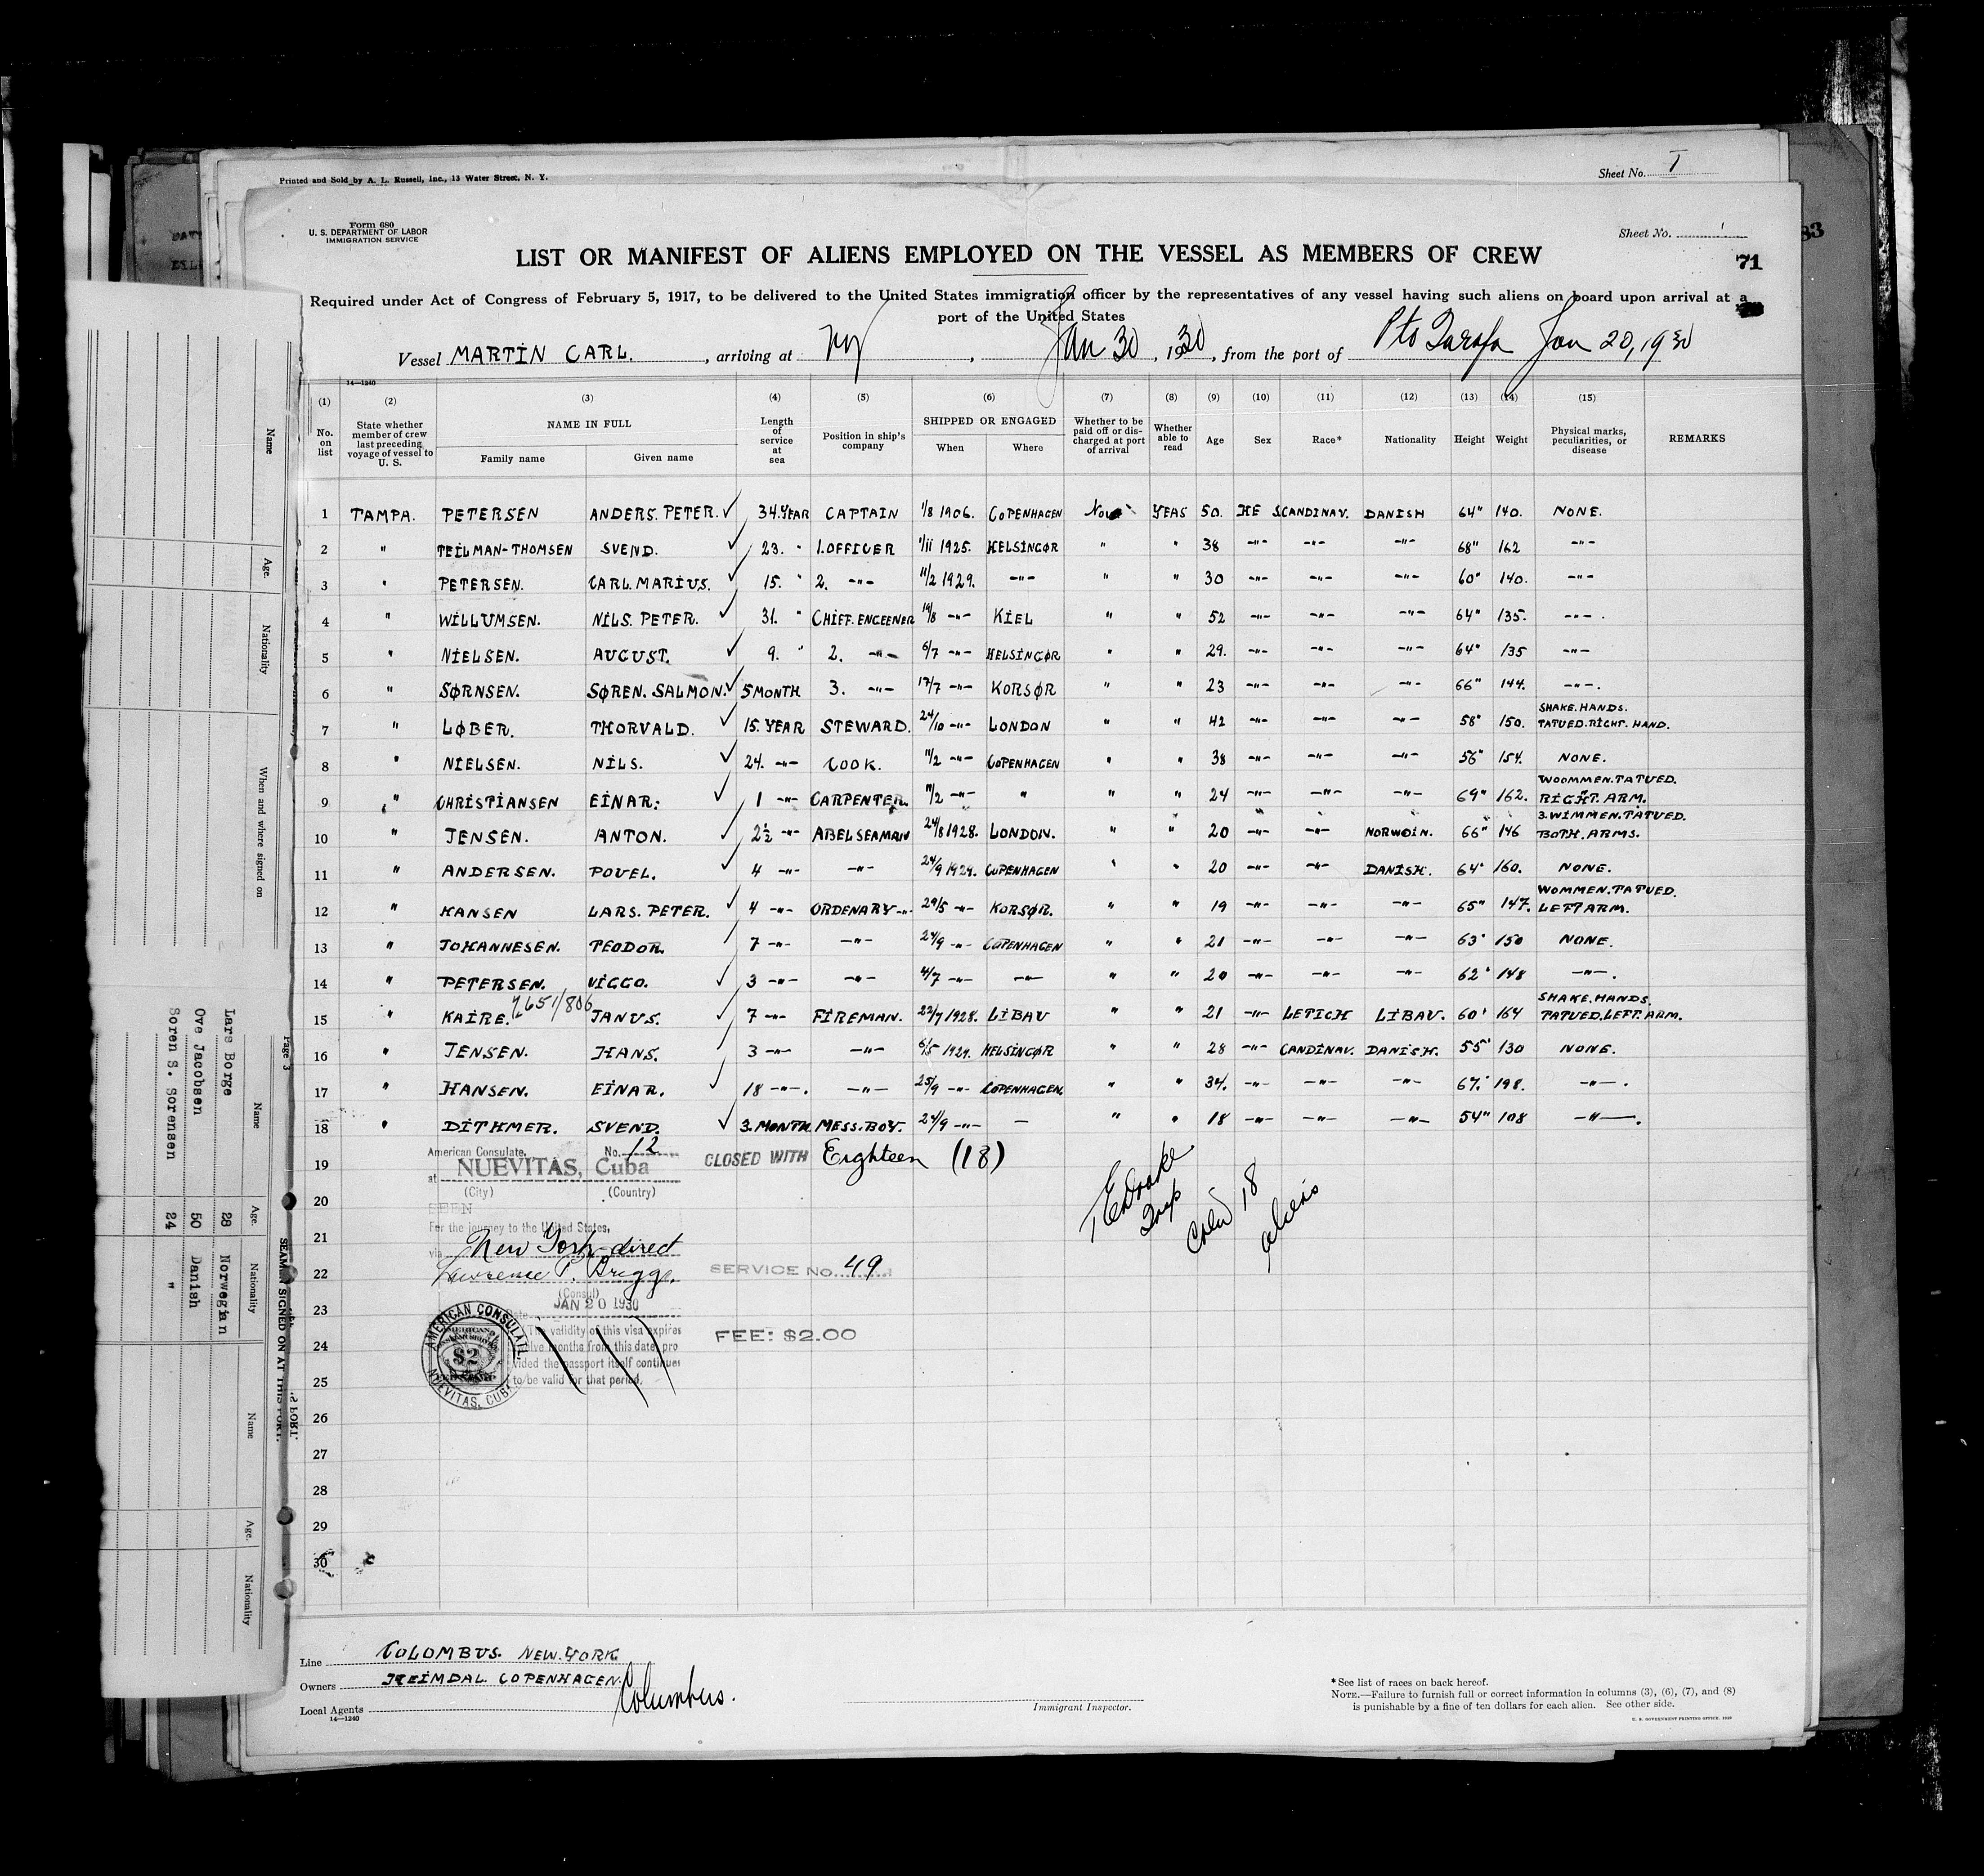 Printed and Sold by A. L. Russell, Inc., 13 Water Street, N. Y.
Sheet No. I
Form 680
U. S. DEPARTMENT OF LABOR
IMMIGRATION SERVICE
Sheet No. 1
83
LIST OR MANIFEST OF ALIENS EMPLOYED ON THE VESSEL AS MEMBERS OF CREW
71
Required under Act of Congress of February 5, 1917, to be delivered to the United States immigration officer by the representatives of any vessel having such aliens on board upon arrival at a
port of the United States
Vessel MARTIN CARL. , arriving at NY , Jan 30 , 1930 , from the port of Pto Tarafa Jan 20, 1930
14—1240
(1) (2) (3) (4) (5) (6) (7) (8) (9) (10) (11) (12) (13) (14) (15)
No. on list
State whether member of crew last preceding voyage of vessel to U. S.
NAME IN FULL
Family name
Given name
Length of service at sea
Position in ship's company
SHIPPED OR ENGAGED
When
Where
Whether to be paid off or discharged at port of arrival
Whether able to read
Age
Sex
Race*
Nationality
Height
Weight
Physical marks, peculiarities, or disease
REMARKS
1 TAMPA. PETERSEN ANDERS. PETER. ✓ 34.YEAR CAPTAIN 1/8 1906. COPENHAGEN No YEAS 50. HE SCANDINAV. DANISH 64" 140. NONE.
2 " TEILMAN-THOMSEN SVEND. ✓ 23. " 1.OFFICER 1/11 1925. HELSINGØR " " 38 -"- -"- -"- 68" 162 -"-
3 " PETERSEN. CARL. MARIUS. ✓ 15. " 2. -"- 11/2 1929. -"- " " 30 -"- -"- -"- 60" 140. -"-
4 " WILLUMSEN. NILS. PETER. ✓ 31. " CHIEFF. ENGEENER 19/8 -"- KIEL " " 52 -"- -"- -"- 64" 135. -"-.
5 " NIELSEN. AUGUST. ✓ 9. " 2. -"- 6/7 -"- HELSINGØR " " 29. -"- -"- -"- 64" 135 -"-
6 " SØRNSEN. SØREN. SALMON. ✓ 5 MONTH 3. -"- 17/7 -"- KORSØR " " 23 -"- -"- -"- 66" 144. -"-.
7 " LØBER. THORVALD. ✓ 15. YEAR STEWARD. 24/10 -"- LONDON " " 42 -"- -"- -"- 58" 150. SHAKE. HANDS. TATUED. RIGHT. HAND.
8 " NIELSEN. NILS. ✓ 24. -"- COOK. 11/2 -"- COPENHAGEN " " 38 -"- -"- -"- 56" 154. NONE.
9 " CHRISTIANSEN EINAR. ✓ 1 -"- CARPENTER. 11/2 -"- " " " 24 -"- -"- -"- 69" 162. WOOMMEN. TATUED. RIGHT. ARM.
10 " JENSEN. ANTON. ✓ 2½ -"- ABELSEAMAN 24/8 1928. LONDON. " " 20 -"- -"- NORWOIN. 66" 146 3. WIMMEN. TATUED. BOTH. ARMS.
11 " ANDERSEN. POVEL. ✓ 4 -"- -"- 24/9 1929. COPENHAGEN " " 20 -"- -"- DANISH. 64" 160. NONE.
12 " HANSEN LARS. PETER. ✓ 4 -"- ORDENARY-"- 29/5 -"- KORSØR. " " 19 -"- -"- -"- 65" 147. WOMMEN. TATUED. LEFT ARM.
13 " JOHANNESEN. TEODOR. ✓ 7 -"- -"- 24/9 -"- COPENHAGEN " " 21 -"- -"- -"- 63" 150 NONE.
14 " PETERSEN. VIGGO. ✓ 3 -"- -"- 4/7 -"- -"- " " 20 -"- -"- -"- 62" 148 -"-.
15 " KAIRE. 7651/806 JANUS. ✓ 7 -"- FIREMAN. 22/7 1928. LIBAU " " 21 -"- LETICH LIBAU. 60" 164 SHAKE. HANDS. TATUED. LEFT. ARM.
16 " JENSEN. HANS. ✓ 3 -"- -"- 6/5 1929. HELSINGØR " " 28 -"- CANDINAV. DANISH. 55" 130 NONE.
17 " HANSEN. EINAR. ✓ 18 -"-. -"- 25/9 -"- COPENHAGEN. " " 34. -"- -"- -"- 67" 198. -"-.
18 " DITHMER. SVEND. ✓ 3. MONTH MESS. BOY. 24/9 -"- — " " 18 -"- -"- -"- 54" 108 -"-.
19
20
21
22
23
24
25
26
27
28
29
30
American Consulate, No. 12
at NUEVITAS, Cuba
(City) (Country)
SEEN
For the journey to the United States,
via New York-direct
Lawrence P. Briggs.
(Consul)
Date JAN 20 1930
The validity of this visa expires
twelve months from this date, pro
vided the passport itself continues
to be valid for that period.
AMERICAN CONSULATE
$2
NUEVITAS, CUBA
CLOSED WITH Eighteen (18)
SERVICE No. 49
FEE: $2.00
Crew 18
aliens
Line COLOMBUS. NEW.YORK
Owners HEIMDAL. COPENHAGEN.
Local Agents Columbus.
14—1240
Immigrant Inspector.
*See list of races on back hereof.
NOTE.—Failure to furnish full or correct information in columns (3), (6), (7), and (8)
is punishable by a fine of ten dollars for each alien. See other side.
U. S. GOVERNMENT PRINTING OFFICE
Page 3
SEAMEN SIGNED ON AT THIS PORT.
Name Age. Nationality When and where signed on
Name Age. Nationality
Lars Borge 28 Norwegian
Ove Jacobsen 50 Danish
Soren S. Sorensen 24 "
Name Age. Nationality